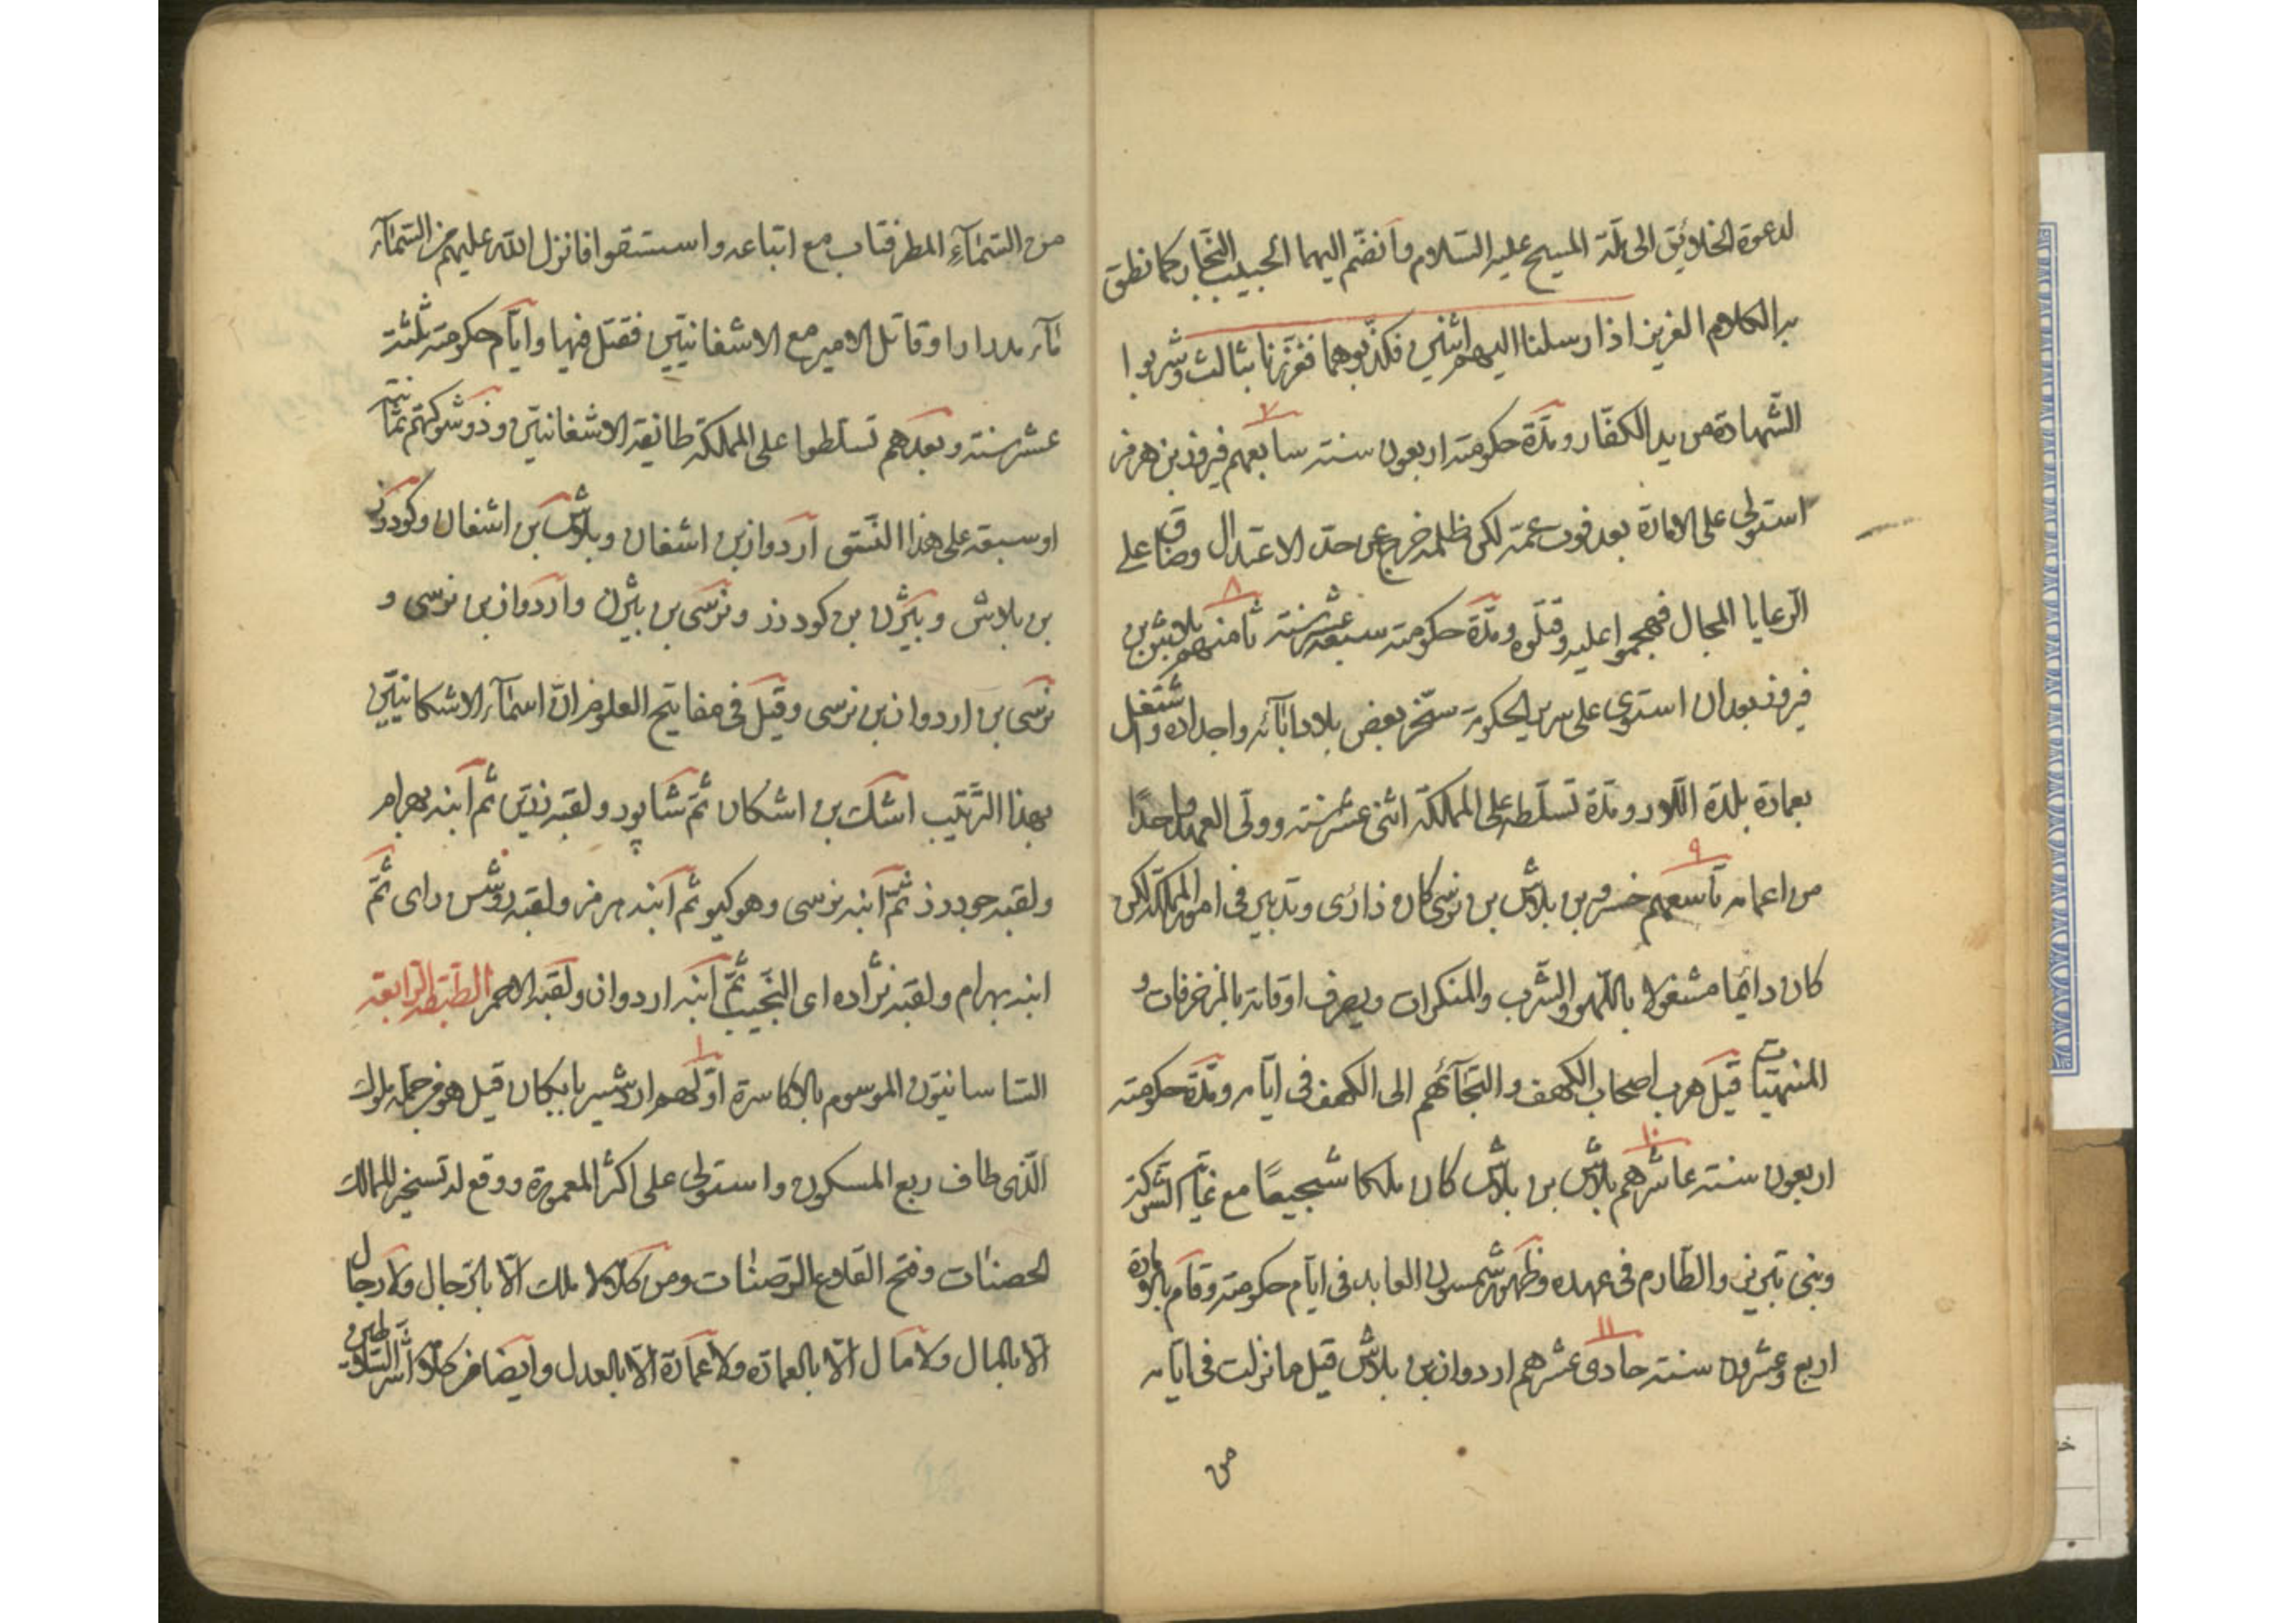 لدعوة الخلائق الى ملّة المسيح عليه السّلام وانضّم اليهما الحبيب النّجّار كما نطق
به الكلام العزيز اذ ارسلنا اليهم اثنين فكذّبوهما فعزّزنا بثالث وشربوا
الشّهادة من يد الكفّار ومدّة حكومته اربعون سنة سابعهم فيروز بن هرمز
٧
استولى على الامارة بعد فوت عمّه لكن ظلمه خرج عن حدّ الاعتدال وضاق على
الرّعايا المجال فهجموا عليه وقتلوه ومدّة حكومته سبعة عشر سنة ثامنهم بلاش بن
٨
فيروز بعد ان استوى على سرير الحكومة سخّر بعض بلاد اٰبآئه واجداده واشتغل
بعمارة بلدة اللّار ومدّة تسلّطه على المملكة اثنى عشر سنة وولّى العهد واحدًا
من اعمامه تاسعهم خسرو بن بلاش بن نرسى كان ذا رى وتدبير فى امور المملكة لكن
٩
كان دائما مشغولا باللّهو والشّرب والمنكرات ويصرف اوقاته بالمزخرفات و
المنهيّات قيل هرب اصحاب الكهف والتجآئهم الى الكهف فى ايّامه ومدّة حكومته
اربعون سنة عاشرهم بلاش بن بلاش كان ملكا شجيعًا مع غاية الشّوكة
١٠
وبنى تبريز والطّارم فى عهده وظهور شمسون العابد فى ايّام حكومته وقام بالامارة
اربع وعشرون سنة حادى عشرهم اردوان بن بلاش قيل ما نزلت فى ايّامه
١١
من
من السّمآءِ المطر فتاب مع اتباعه واستسقوا فانزل اللّه عليهم من السّمآء
مآء مدرارا وقاتل الامير مع الاشغانيّين فقتل فيها وايّام حكومته ثلثة
عشر سنة وبعدهم تسلّطوا على المملكة طائفة الاشغانيّين وذو شوكتهم ثمانية
او سبعة على هذا النّسق اردوان بن اشغان وبلاش بن اشغان وكودرز
بن بلاش وبيژن بن كودرز ونرسى بن بيژن واردوان بن نرسى و
نرسى بن اردوان بن نرسى وقيل فى مفاتيح العلوم انّ اسمآء الاشكانيّين
بهذا التّرتيب اشك بن اشكان ثمّ شاپور ولقبه زرّين ثم ابنه بهرام
ولقبه جودرز ثمّ ابنه نرسى وهو كيو ثم ابنه هرمز ولقبه روشن راى ثمّ
ابنه بهرام ولقبه نژاده اى النّجيب ثمّ ابنه اردوان ولقبه الاحمر الطّبقة الرّابعة
السّاسانيّون الموسوم بالاكاسرة اوّلهم اردشير بابكان قيل هو من جملة ملوك
١
الّذى طاف ربع المسكون واستولى على اكثر المعمورة ووقع له تسخير الممالك
الحصنات وفتح القلاع الرّصنات ومن كلامه لا ملك الّا بالرّجال ولا رجال
الّا بالمال ولا مال الّا بالعمارة ولا عمارة الّا بالعدل وايضا من كلامه اشر السّلاطين